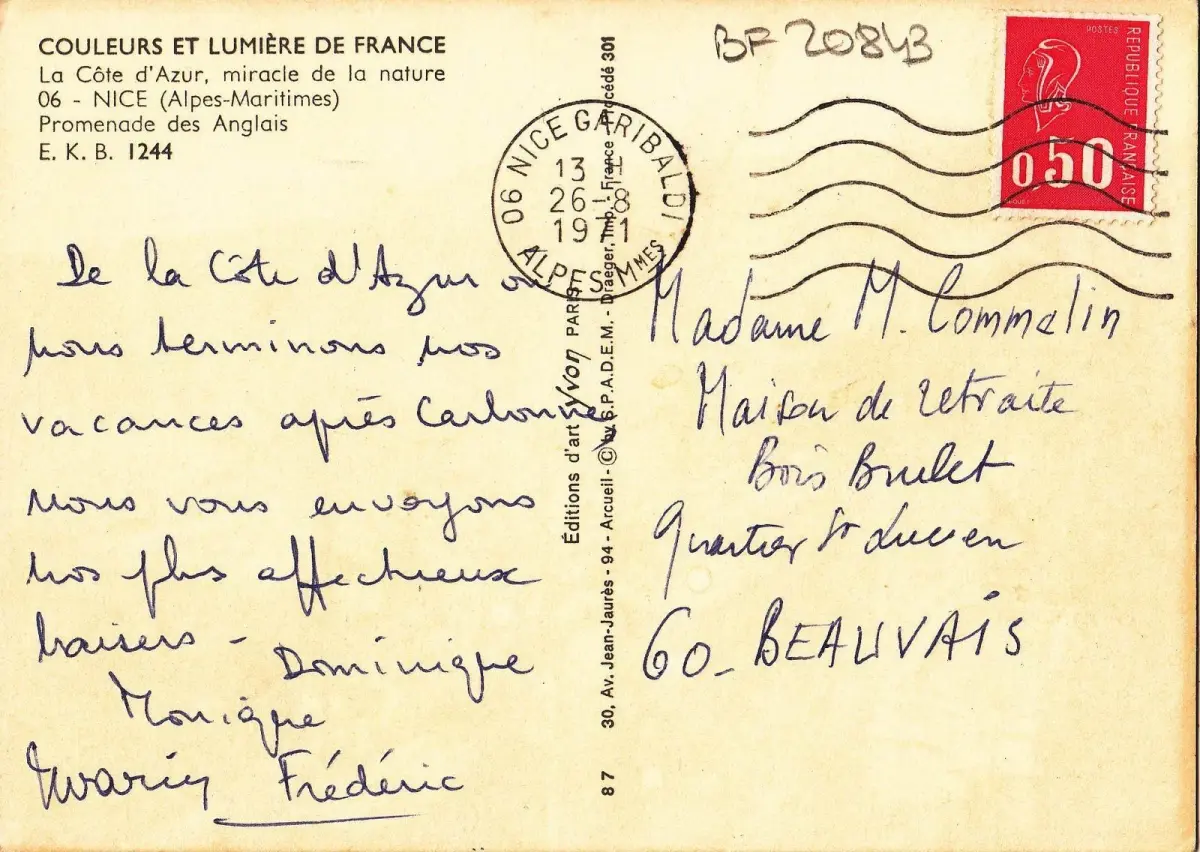 COULEURS ET LUMIÈRE DE FRANCE
La Côte d'Azur, miracle de la nature
06 - NICE (Alpes-Maritimes)
Promenade des Anglais
E. K. B. 1244
BF 20843
POSTES
REPUBLIQUE FRANÇAISE
0,50
06 NICE GARIBALDI
13 H
26-8
1971
ALPES-MMES
De la Côte d'Azur où
nous terminons nos
vacances après Carbonne
nous vous envoyons
nos plus affectueux
baisers -
Dominique
Monique
Frédéric
Éditions d'art Yvon PARIS
30, Av. Jean-Jaurès - 94 - Arcueil - © by S.P.A.D.E.M. - Draeger, Imp. - France Procédé 301
87
Madame M. Commelin
Maison de retraite
Bois Brulet
Quartier St Lucien
60 - BEAUVAIS